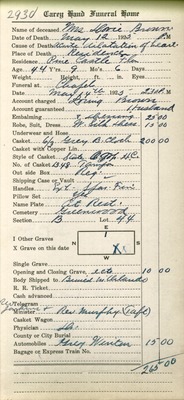 2930 Carey Hand Funeral Home
Name of deceased Mrs. Dovie Brown
Date of Death May 1923
Cause of Death Acute Dilatation of heart
Place of Death Residence
Residence Pine Castle Fla
Age 44 Y 9 Mo 6 Ds
Weight, Height, ft. in. Eyes
Funeral at Chapel
Time of Funeral May 1923 P.M.
Account charged Brown
Account guaranteed Husband
Embalming & Opening 25 00
Robe, Suit, Dress. 15 00
Underwear and Hose
Casket 6/3 Grey B. Cloth 200 00
Casket with Copper Lin.
Style of Casket State
No. of Casket
Out side Box Reg
Shipping Case or Vault
Handles
Pillow Set
Name Plate At Rest.
Cemetery Greenwood
Section B Lot 44
N
W E
S
I Other Graves
X Grave on this date
Single Grave
Opening and Closing Grave, etc 10 00
Body Shipped to Buried in Orlando
R. R. Ticket.
Cash advanced
Telegram
Minister Rev Murphy
Casket Wagon
Physician
County or City Burial
Automobiles Winton 15 00
Bagage or Express Train No.
265.00